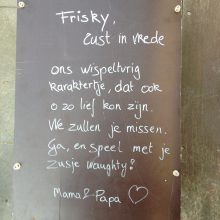 Frisky,
Rust in vrede
ons wispelturig
karaktertje, dat ook
o zo lief kon zijn.
We zullen je missen.
Ga, en speel met je
zusje Naughty!
Mama & Papa ♡